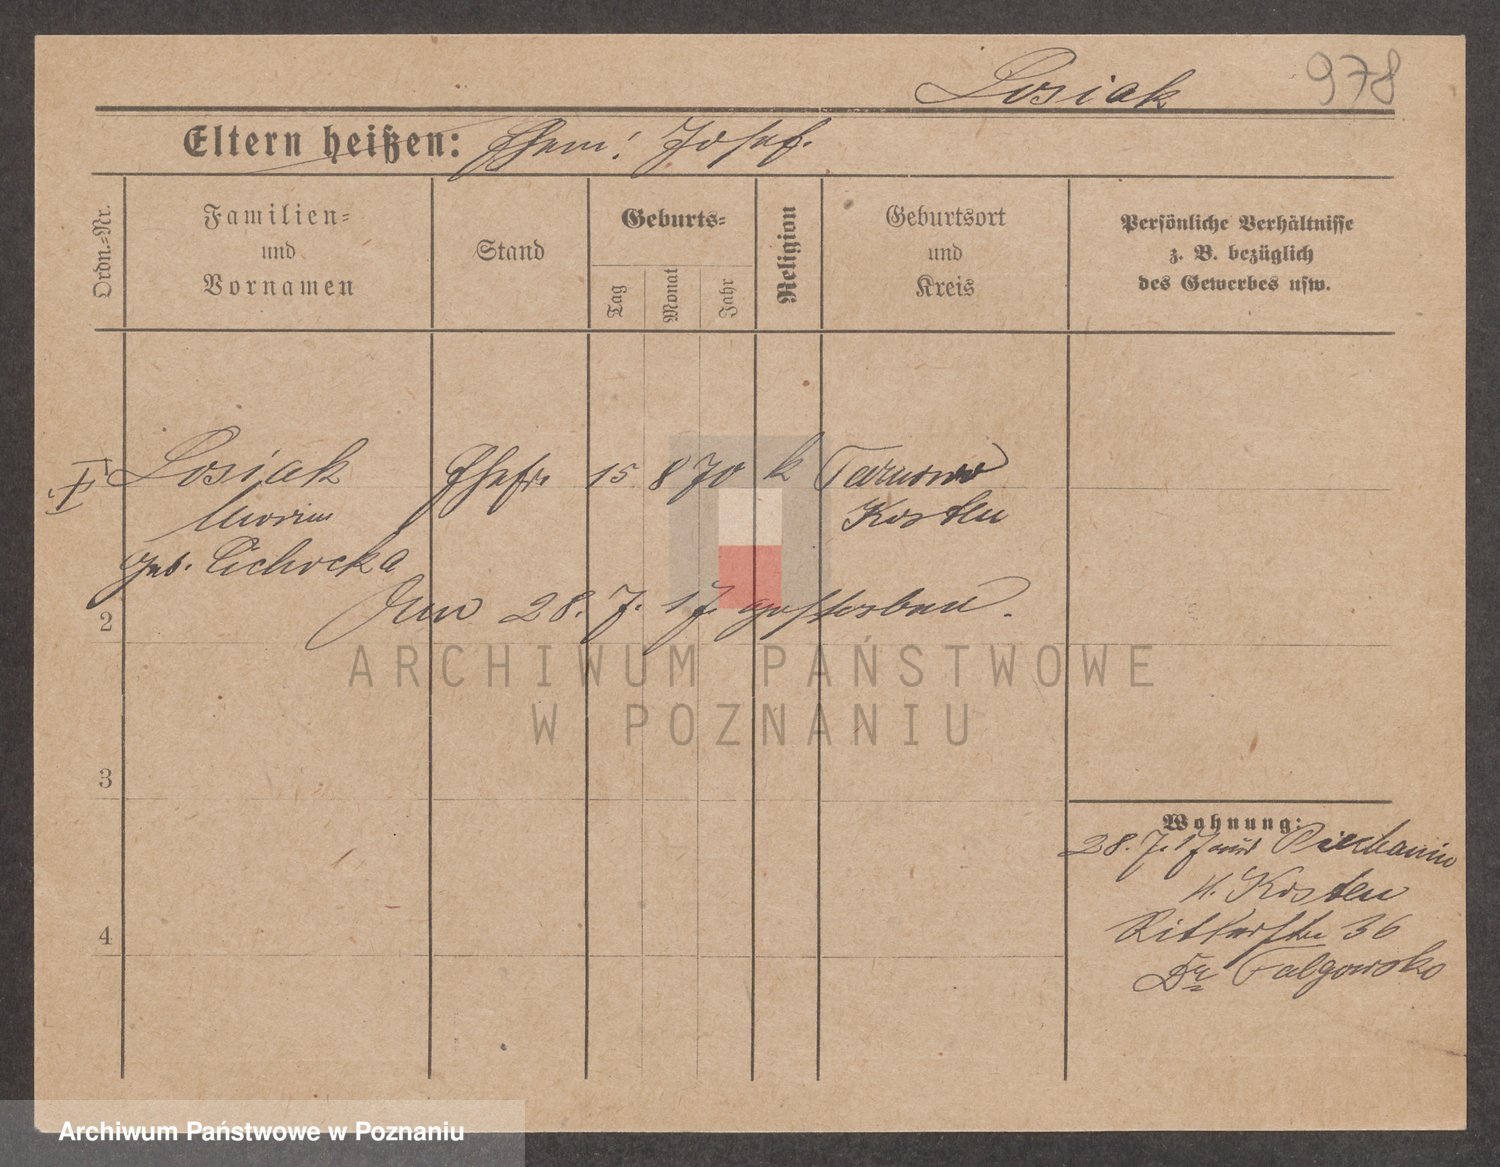 Losiak 978
Eltern heißen: Ehem: Josef.
Ordn.=Nr.
Familien=
und
Vornamen
Stand
Geburts=
Tag
Monat
Jahr
Religion
Geburtsort
und
Kreis
Persönliche Verhältnisse
z. B. bezüglich
des Gewerbes usw.
Losiak Ehefr. 15 8 70 k Tarnowo
Maria Kosten
geb. Cichocka
Am 28. 7. 17. gestorben.
2
ARCHIWUM PAŃSTWOWE
W POZNANIU
3
Wohnung:
28. 7. 17 aus Piechanin
K. Kosten
Ritterstr 36
4
Dr
Archiwum Państwowe w Poznaniu